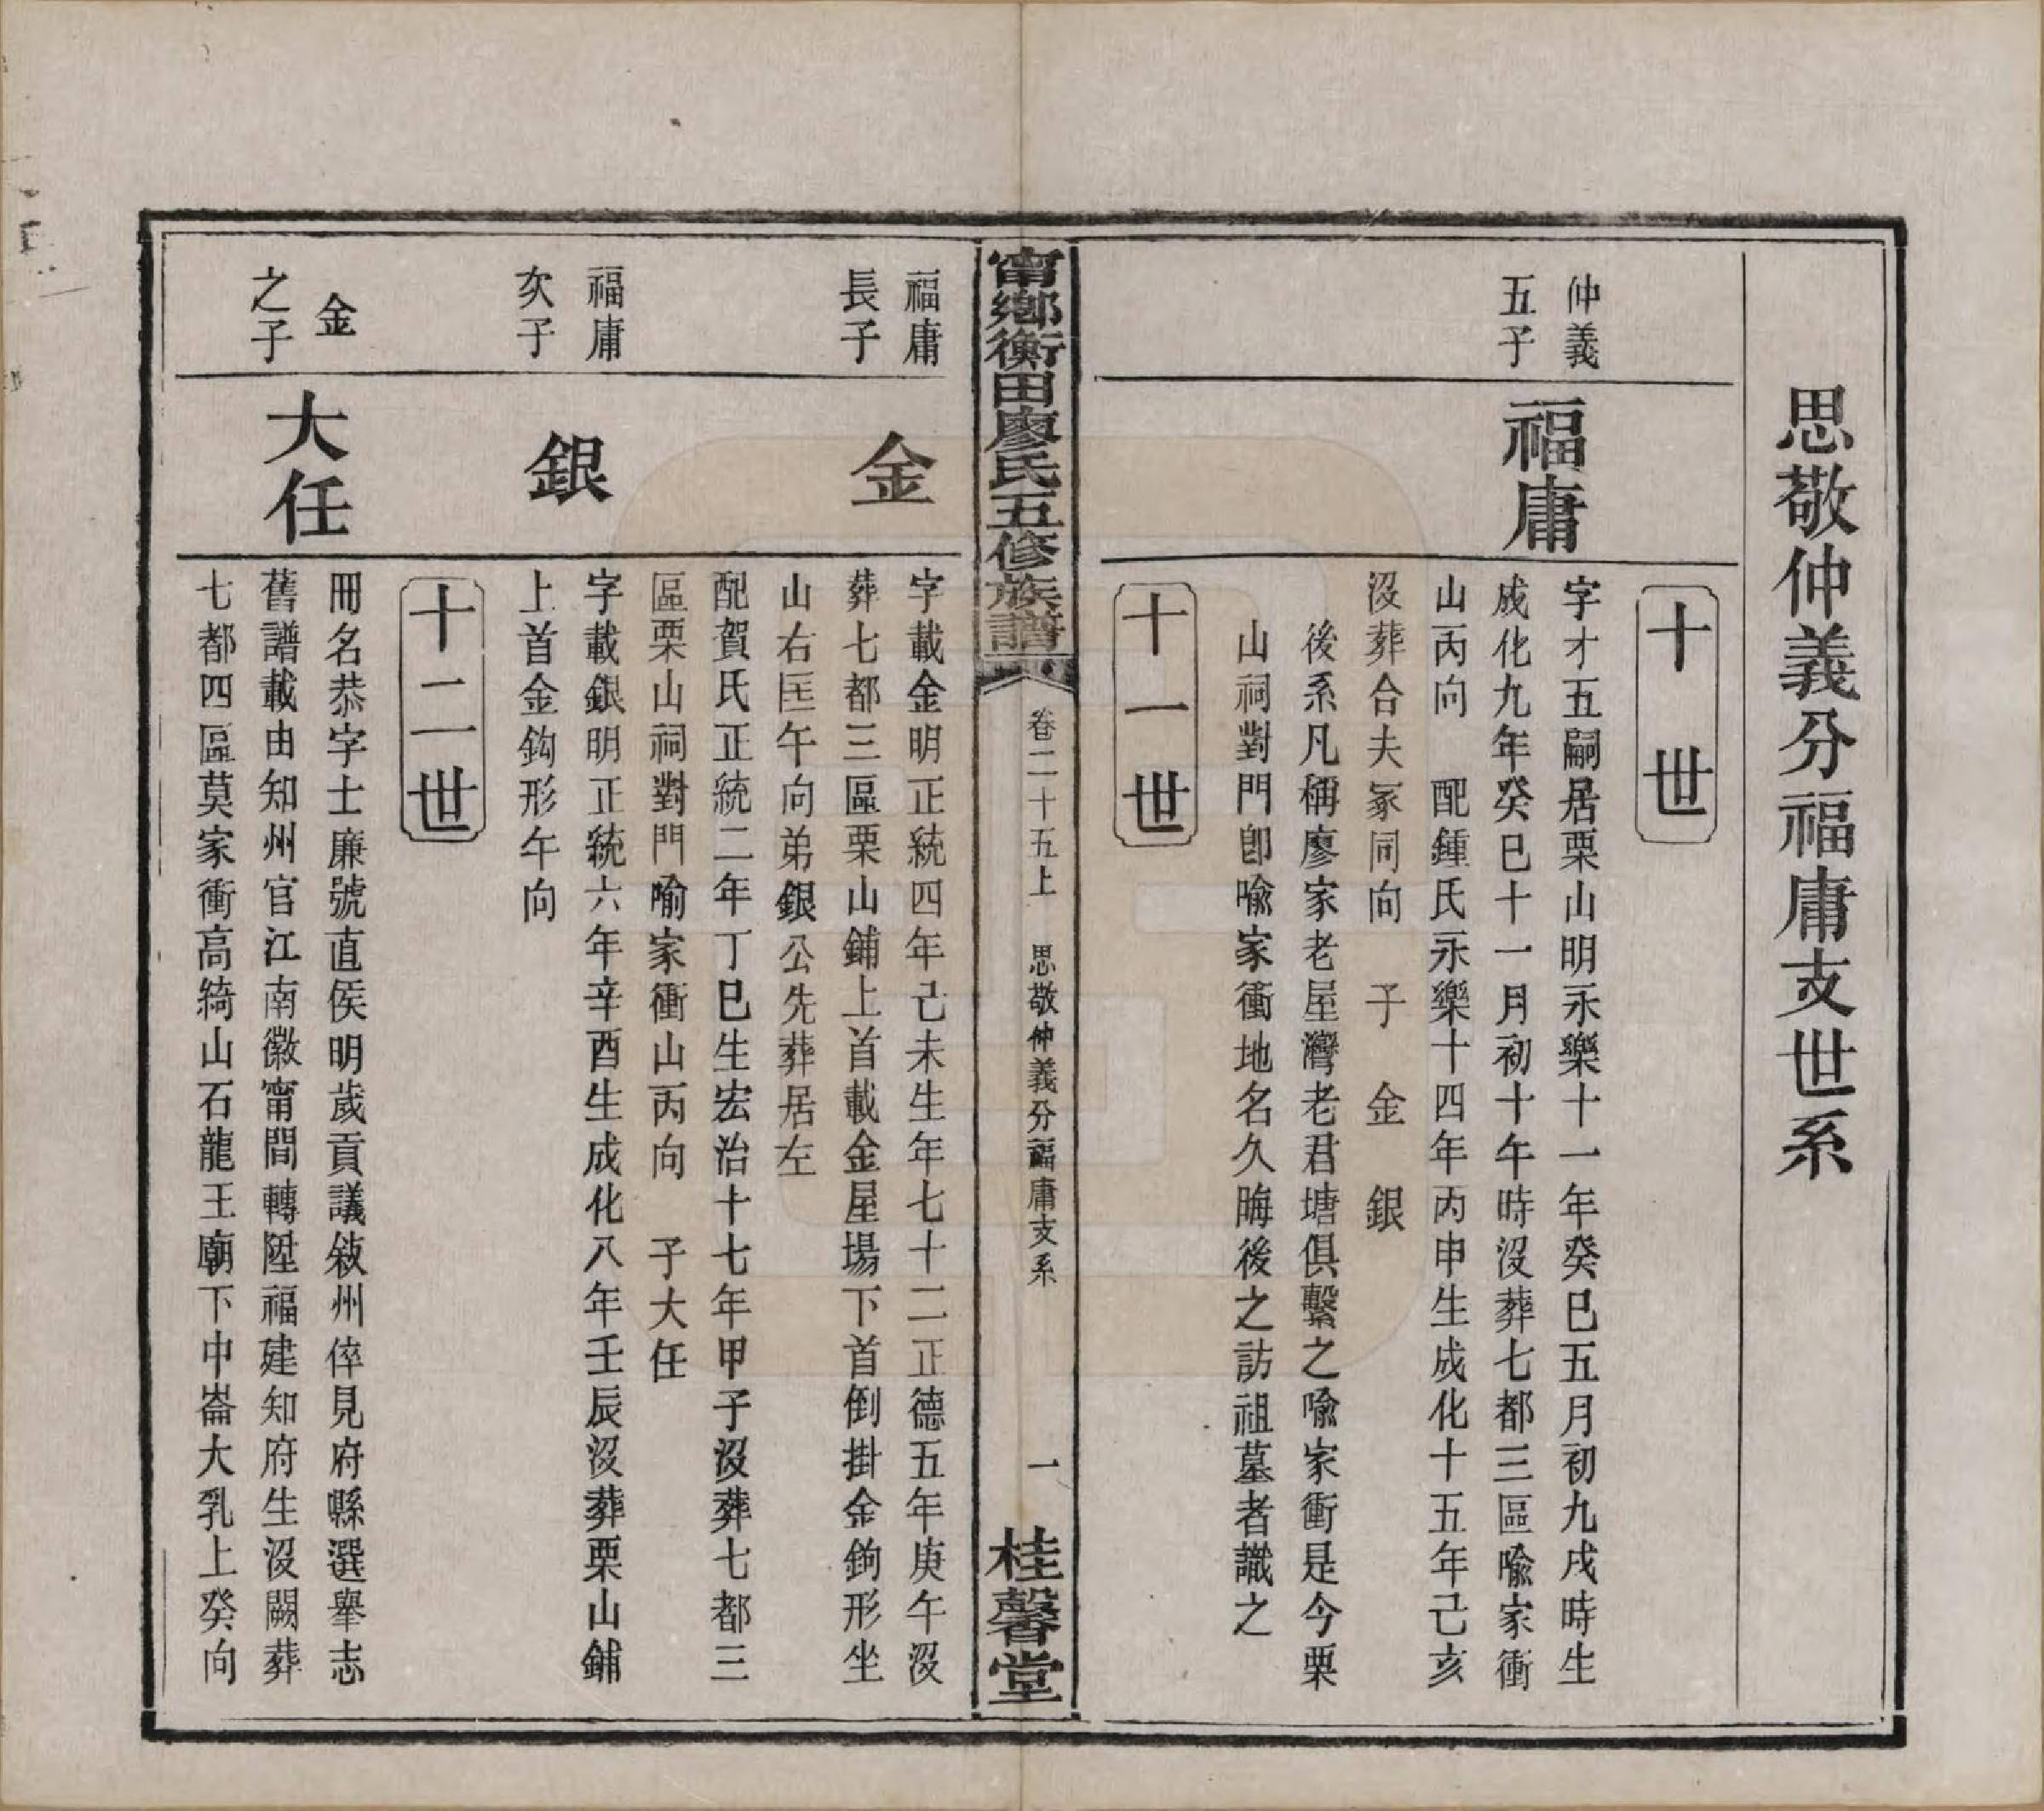 思敬仲義分福庸支世系
十世
仲義
五子
福庸
字才五嗣居栗山明永樂十一年癸巳五月初九戌時生
成化九年癸巳十一月初十午時沒葬七都三區喩家衝
山丙向　配鍾氏永樂十四年丙申生成化十五年己亥
沒葬合夫冢同向　子　金　銀
後系凡稱廖家老屋灣老君塘俱繫之喩家衝是今栗
山祠對門卽喩家衝地名久晦後之訪祖墓者識之
十一世
甯鄉衡田廖氏五修族譜
卷二十五上　思敬仲義分福庸支系
一
桂馨堂
福庸
長子
金
字載金明正統四年己未生年七十二正德五年庚午沒
葬七都三區栗山鋪上首載金屋場下首倒掛金鉤形坐
山右匡午向弟銀公先葬居左
配賀氏正統二年丁巳生宏治十七年甲子沒葬七都三
區栗山祠對門喩家衝山丙向　子大任
福庸
次子
銀
字載銀明正統六年辛酉生成化八年壬辰沒葬栗山鋪
上首金鈎形午向
十二世
金
之子
大任
冊名恭字士廉號直侯明歲貢議敘州倅見府縣選舉志
舊譜載由知州官江南徽甯間轉陞福建知府生沒闕葬
七都四區莫家衝高綺山石龍王廟下中崙大乳上癸向